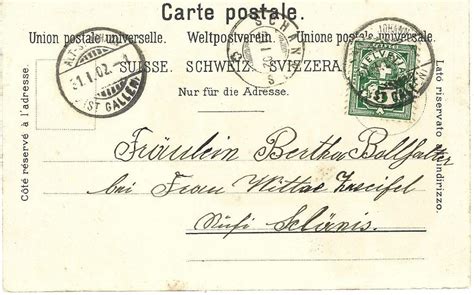 Carte postale.
Union postale universelle. Weltpostverein. Unione postale universale.
SUISSE. SCHWEIZ. SVIZZERA.
Nur für die Adresse.
Côté réservé à l'adresse.
Lato riservato all'indirizzo.
31.I.02.
(ST. GALLEN)
SCHÄNIS
HELVETIA
Fräulein Bertha
bei Frau Wittwe
Rufi Schänis.